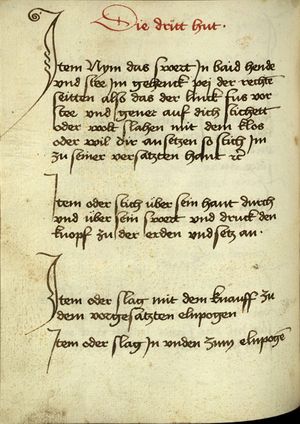 Die dritt hut.
Item Nym das swert In baid hende
und stee im gehenck pej der rechtē
seitten also das der linck fus vor
stee und gener auf dich stichett
oder wolt slahen mit dem klos
oder wil dir an setzen so stich Im
zu seiner versatzten hant
Item oder stich über sein hant durch
und über sein swert und druck den
knopf zu der erden und setz an.
Item oder slag mit dem knauff zu
dem vorgesatzten elnpogen
Item oder slag In unden zum elnpogē